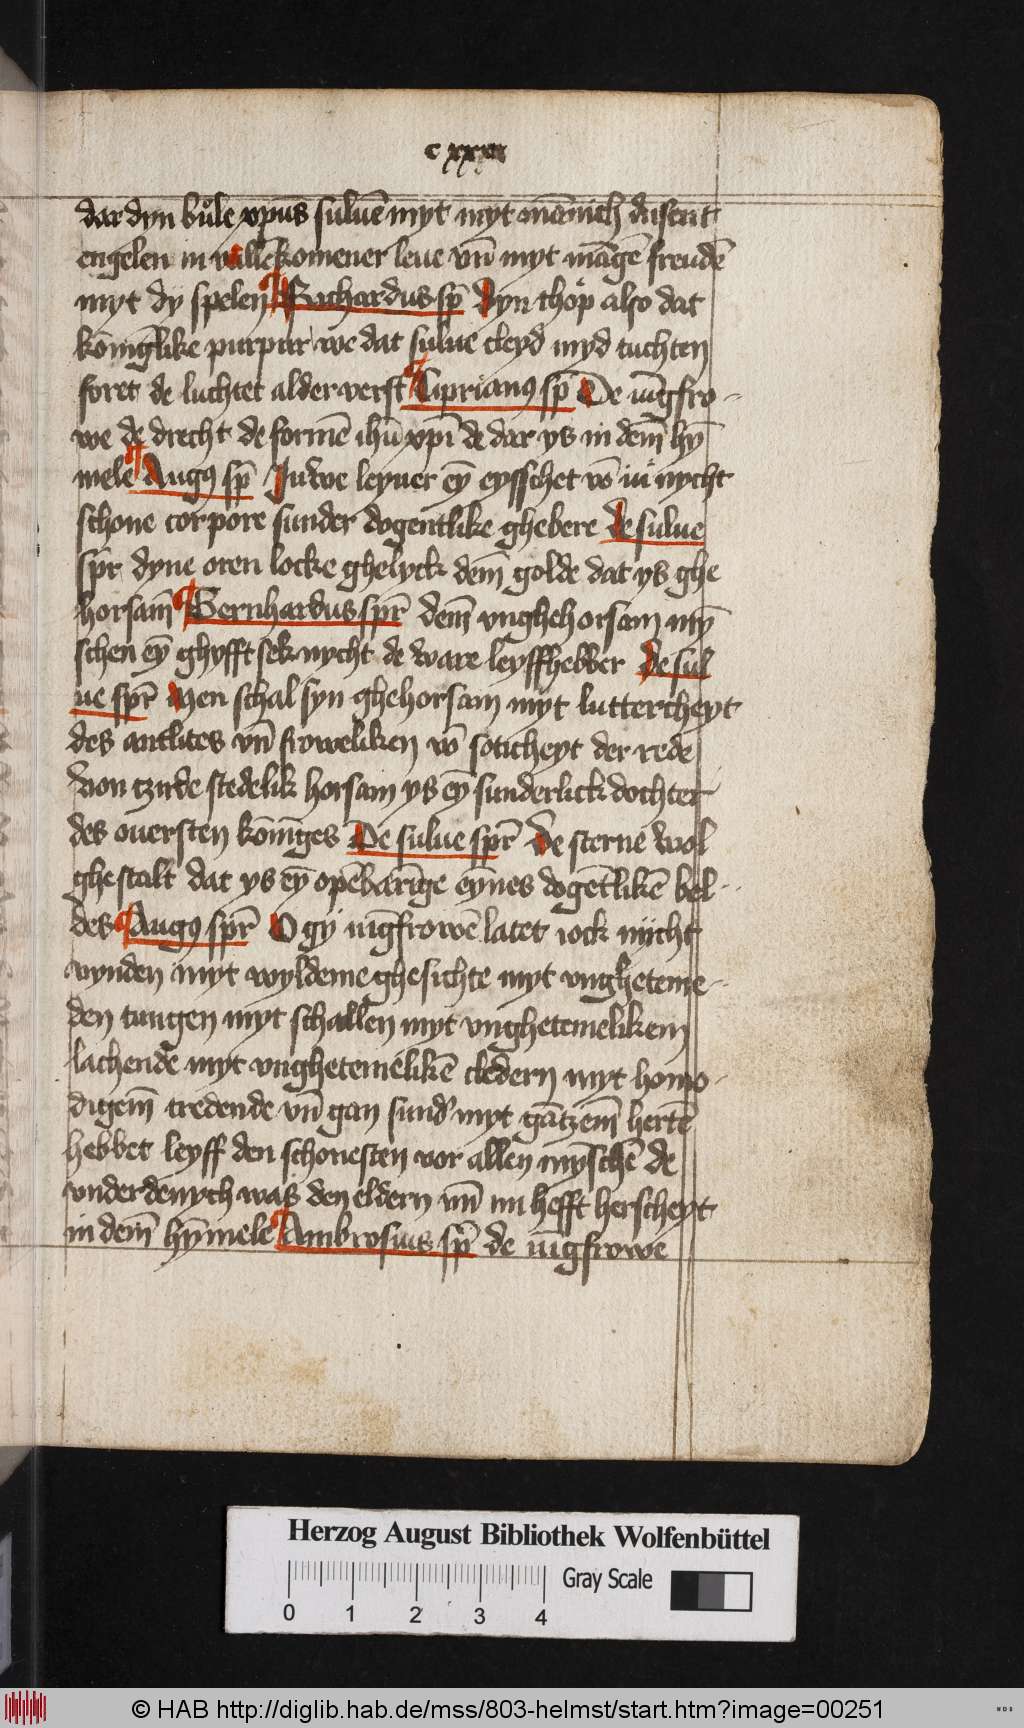 c xxx
dar dyn bůle xpus suluē myt myt mānich
engelen in vullēkomener leue vn̄ myt māgē freudē
myt dy spelen Richardus sp̄ dyn thop also dat
kōnīglike purpur we dat sulue cleyd myd tuchten
foret de luchtet alder verst Ciprianus sp̄ De iūgfro-
we de drecht de formē ihū xpī de dar ys in dem̄ hȳ
mele Augꝰ sp̄ Juwe leyuer eȳ eysschet vō iu nycht
schone corpore sunder dogentlike ghebere de sulue
spr̄ dyne oren locke ghelyck dem̄ golde dat ys ghe
horsam̄ Bernhardus spr̄ dem̄ vnghehorsam mȳ
schen eȳ ghyfft sek nycht de ware leyffhebber de sul
ue spr̄ Men schal syn ghehorsam myt luttercheyt
des antlites vn̄ froweliken vn̄ soticheyt der rede
von tzirde stedelik horsam ys eȳ sunderlick dochter
des ouersten kōnīges De sulue spr̄ de sterne wol
ghestalt dat ys eȳ opēbarīge eȳnes dogētlikē bel-
des Augꝰ spr̄ O gy iūgfrowē latet iock nycht
vynden myt wyldeme ghesichte myt vngheteme-
den tungen myt schallen myt vnghetemelikem
lachende myt vnghetemelikē cledern myt homo-
digem̄ tredende vn̄ gan sund' myt gātzem̄ hertē
hebbet leyff den schonesten vor allen myschē de
vnderdenych was den eldern vn̄ nu hefft herscheyt
in dem̄ hȳmele Ambrosius sp̄ de iūgfrowe
Herzog August Bibliothek Wolfenbüttel
0 1 2 3 4
Gray Scale
© HAB http://diglib.hab.de/mss/803-helmst/start.htm?image=00251